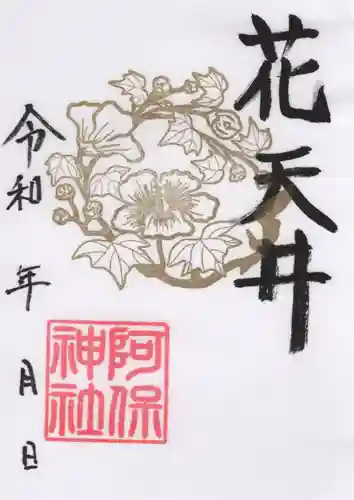 花天井
令和 年 月 日
阿保
神社